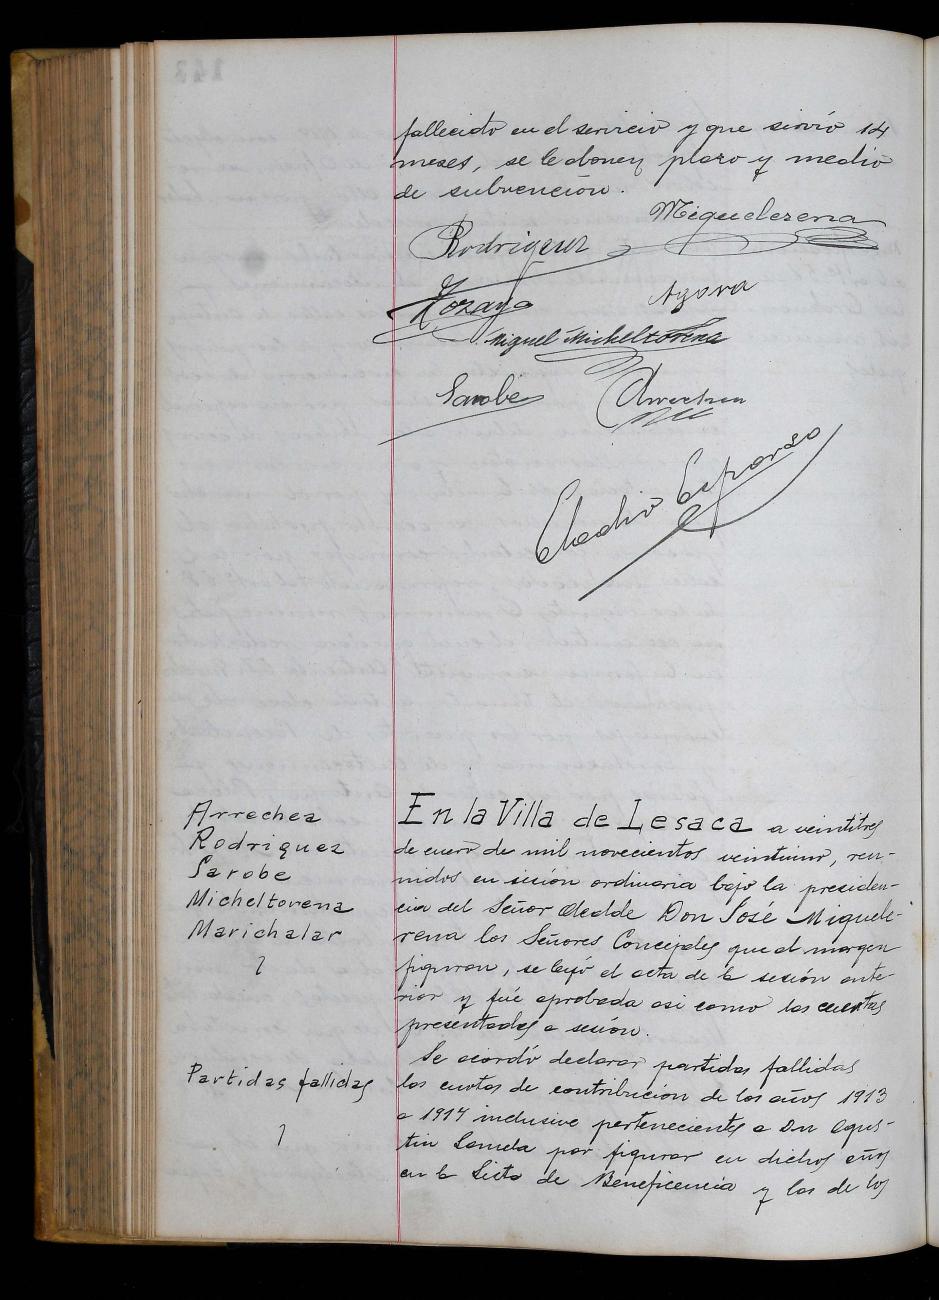 fallecido en el servicio y que sirvió 14
meses, se le abonen plazo y medio
de subvención.
Miquelerena
Rodriguez
Hozaya
Miguel Micheltorena
Sarobe
Arrechea
Eladio Esparza
Arrechea
Rodriguez
Sarobe
Micheltorena
Marichalar
En la Villa de Lesaca a veintitres
de enero de mil novecientos veintiuno, reu-
nidos en sesión ordinaria bajo la presiden-
cia del Señor Alcalde Don José Miquele-
rena los Señores Concejales que al margen
figuran, se leyó el acta de la sesión ante-
rior y fué aprobada asi como las cuentas
presentadas a sesión.
Partidas fallidas
Se acordó declarar partidas fallidas
las cuotas de contribución de los años 1913
a 1914 inclusive pertenecientes a Dn Agus-
tin por figurar en dichos años
en la Lista de Beneficencia y las de los